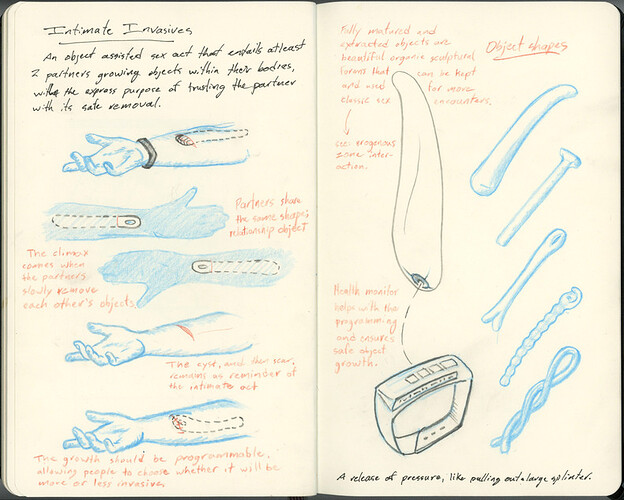 Intimate Invasives
An object assisted sex act that entails atleast
2 partners growing objects within their bodies,
with the express purpose of trusting the partner
with its safe removal.
Partners share
the same shape;
relationship object
The climax
comes when
the partners
slowly remove
each other's objects.
The cyst, and then scar,
remains as reminder of
the intimate act
The growth should be programmable,
allowing people to choose whether it will be
more or less invasive
Fully matured and
extracted objects are
beautiful organic sculptural
forms that can be kept
and used for more
classic sex encounters.
see: erogenous
zone inter-
action.
Object shapes
Health monitor
helps with the
programming
and ensures
safe object
growth.
A release of pressure, like pulling out a large splinter.